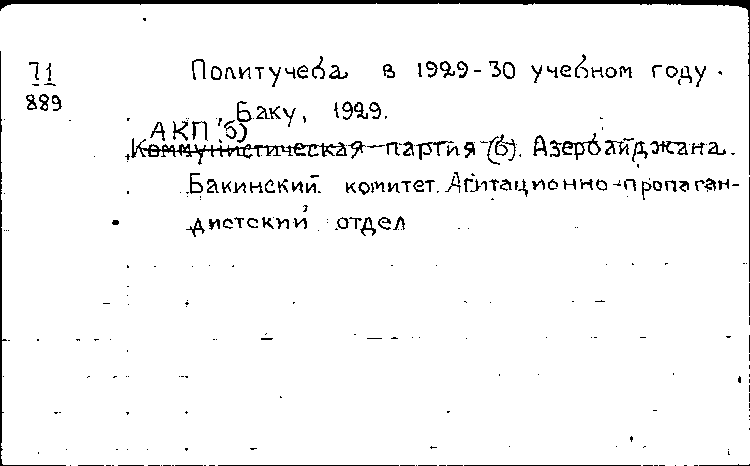 71
889
Политучеба в 1929-30 учебном году.
Баку, 1929.
АКП(б)
Коммунистическая партия (б). Азербайджана.
Бакинский комитет. Агитационно-пропаган-
дистский отдел